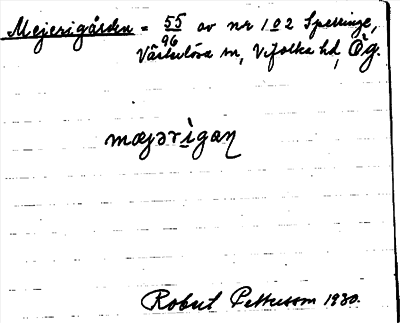 Mejerigården = 55/96 av nr 1 o 2 Sperringe,
Väderlösa sn, Vifolka hd, Ög.
mæjərigaɳ
Robert Pettersson 1930.